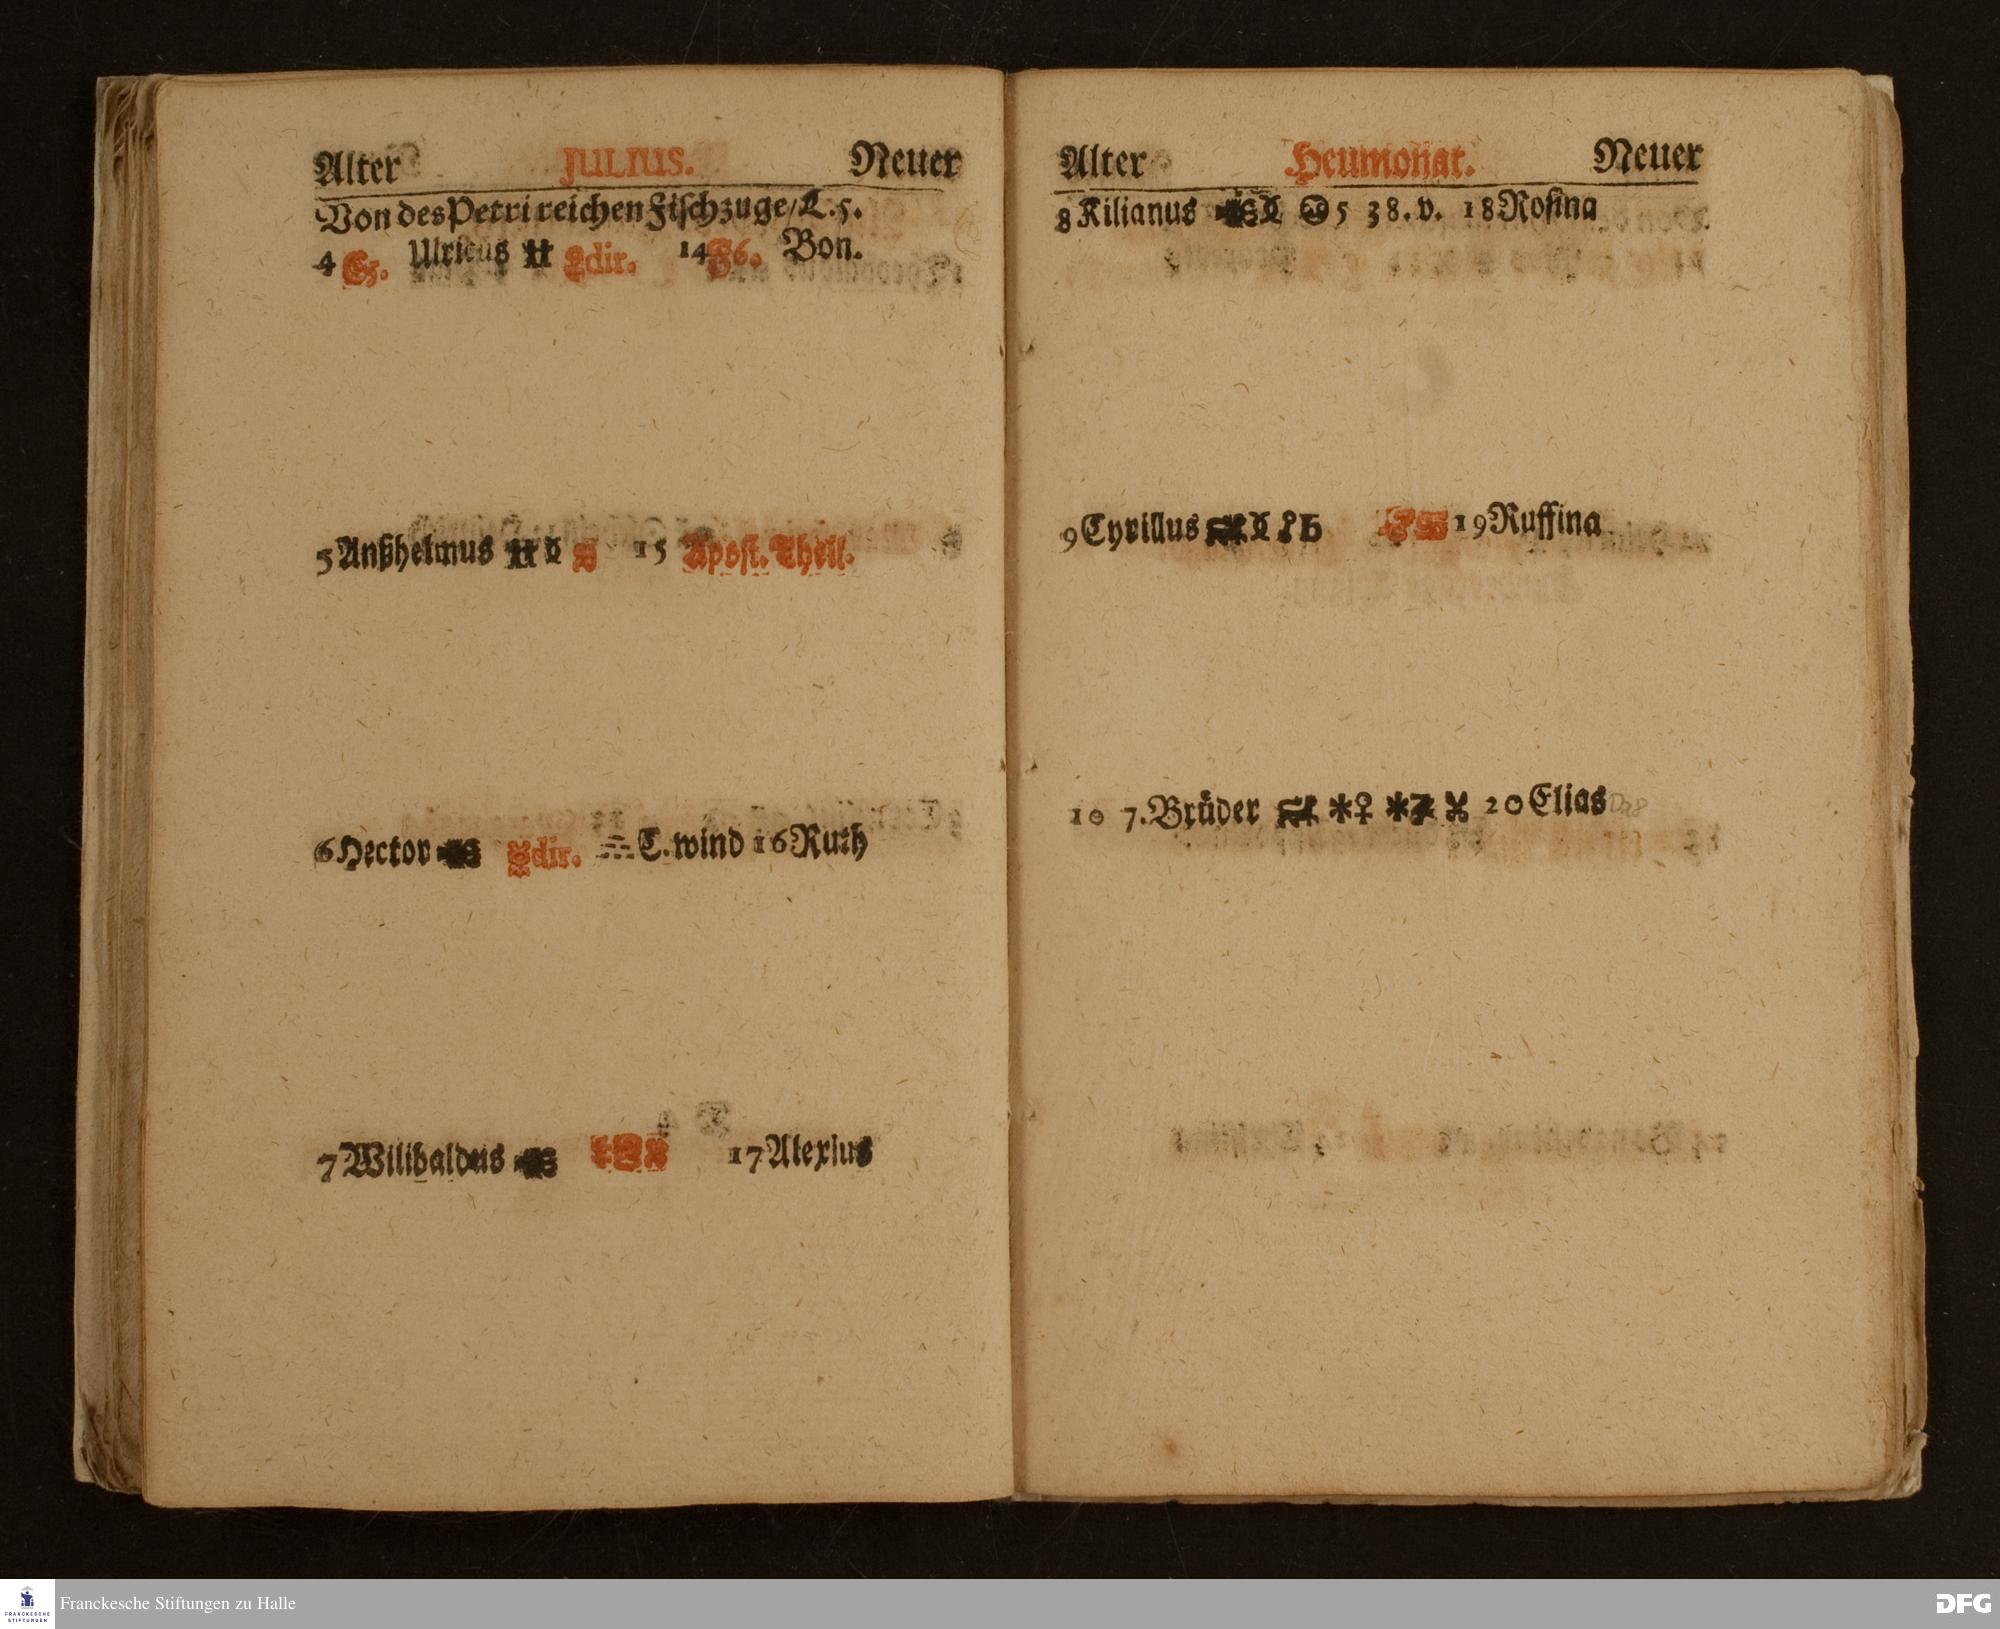 Alter JULIUS. Neuer
Von des Petri reichen Fischzuge/L.5.
4 Ulricus ♊ dir. 14 Bon.
5 Anßhelmus ♊ ☿ 15 Apost. Theil.
6 Hector dir. T.wind 16 Ruth
7 Wilibaldus 17 Alexius
Alter Heumonat. Neuer
8 Kilianus 5 38.v. 18 Rosina
9 Cyrillus ♄ 19 Ruffina
10 7.Brüder *♀ * 20 Elias
Franckesche Stiftungen zu Halle
FRANCKESCHE
STIFTUNGEN
DFG